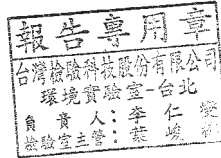 報告專用章
台灣檢驗科技股份有限公司
環境實驗室-台北
負責人：李仁
檢驗室主管：葉峻